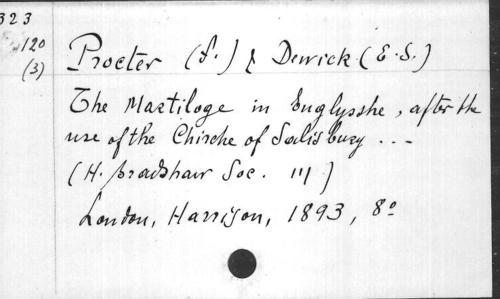 323
120
(3)
Procter (F.) & Dewick (E.S.)
The Martiloge in Englysshe, after the
use of the Chirche of Salisbury ...
(H. Bradshaw Soc. III)
London, Harrison, 1893, 8º